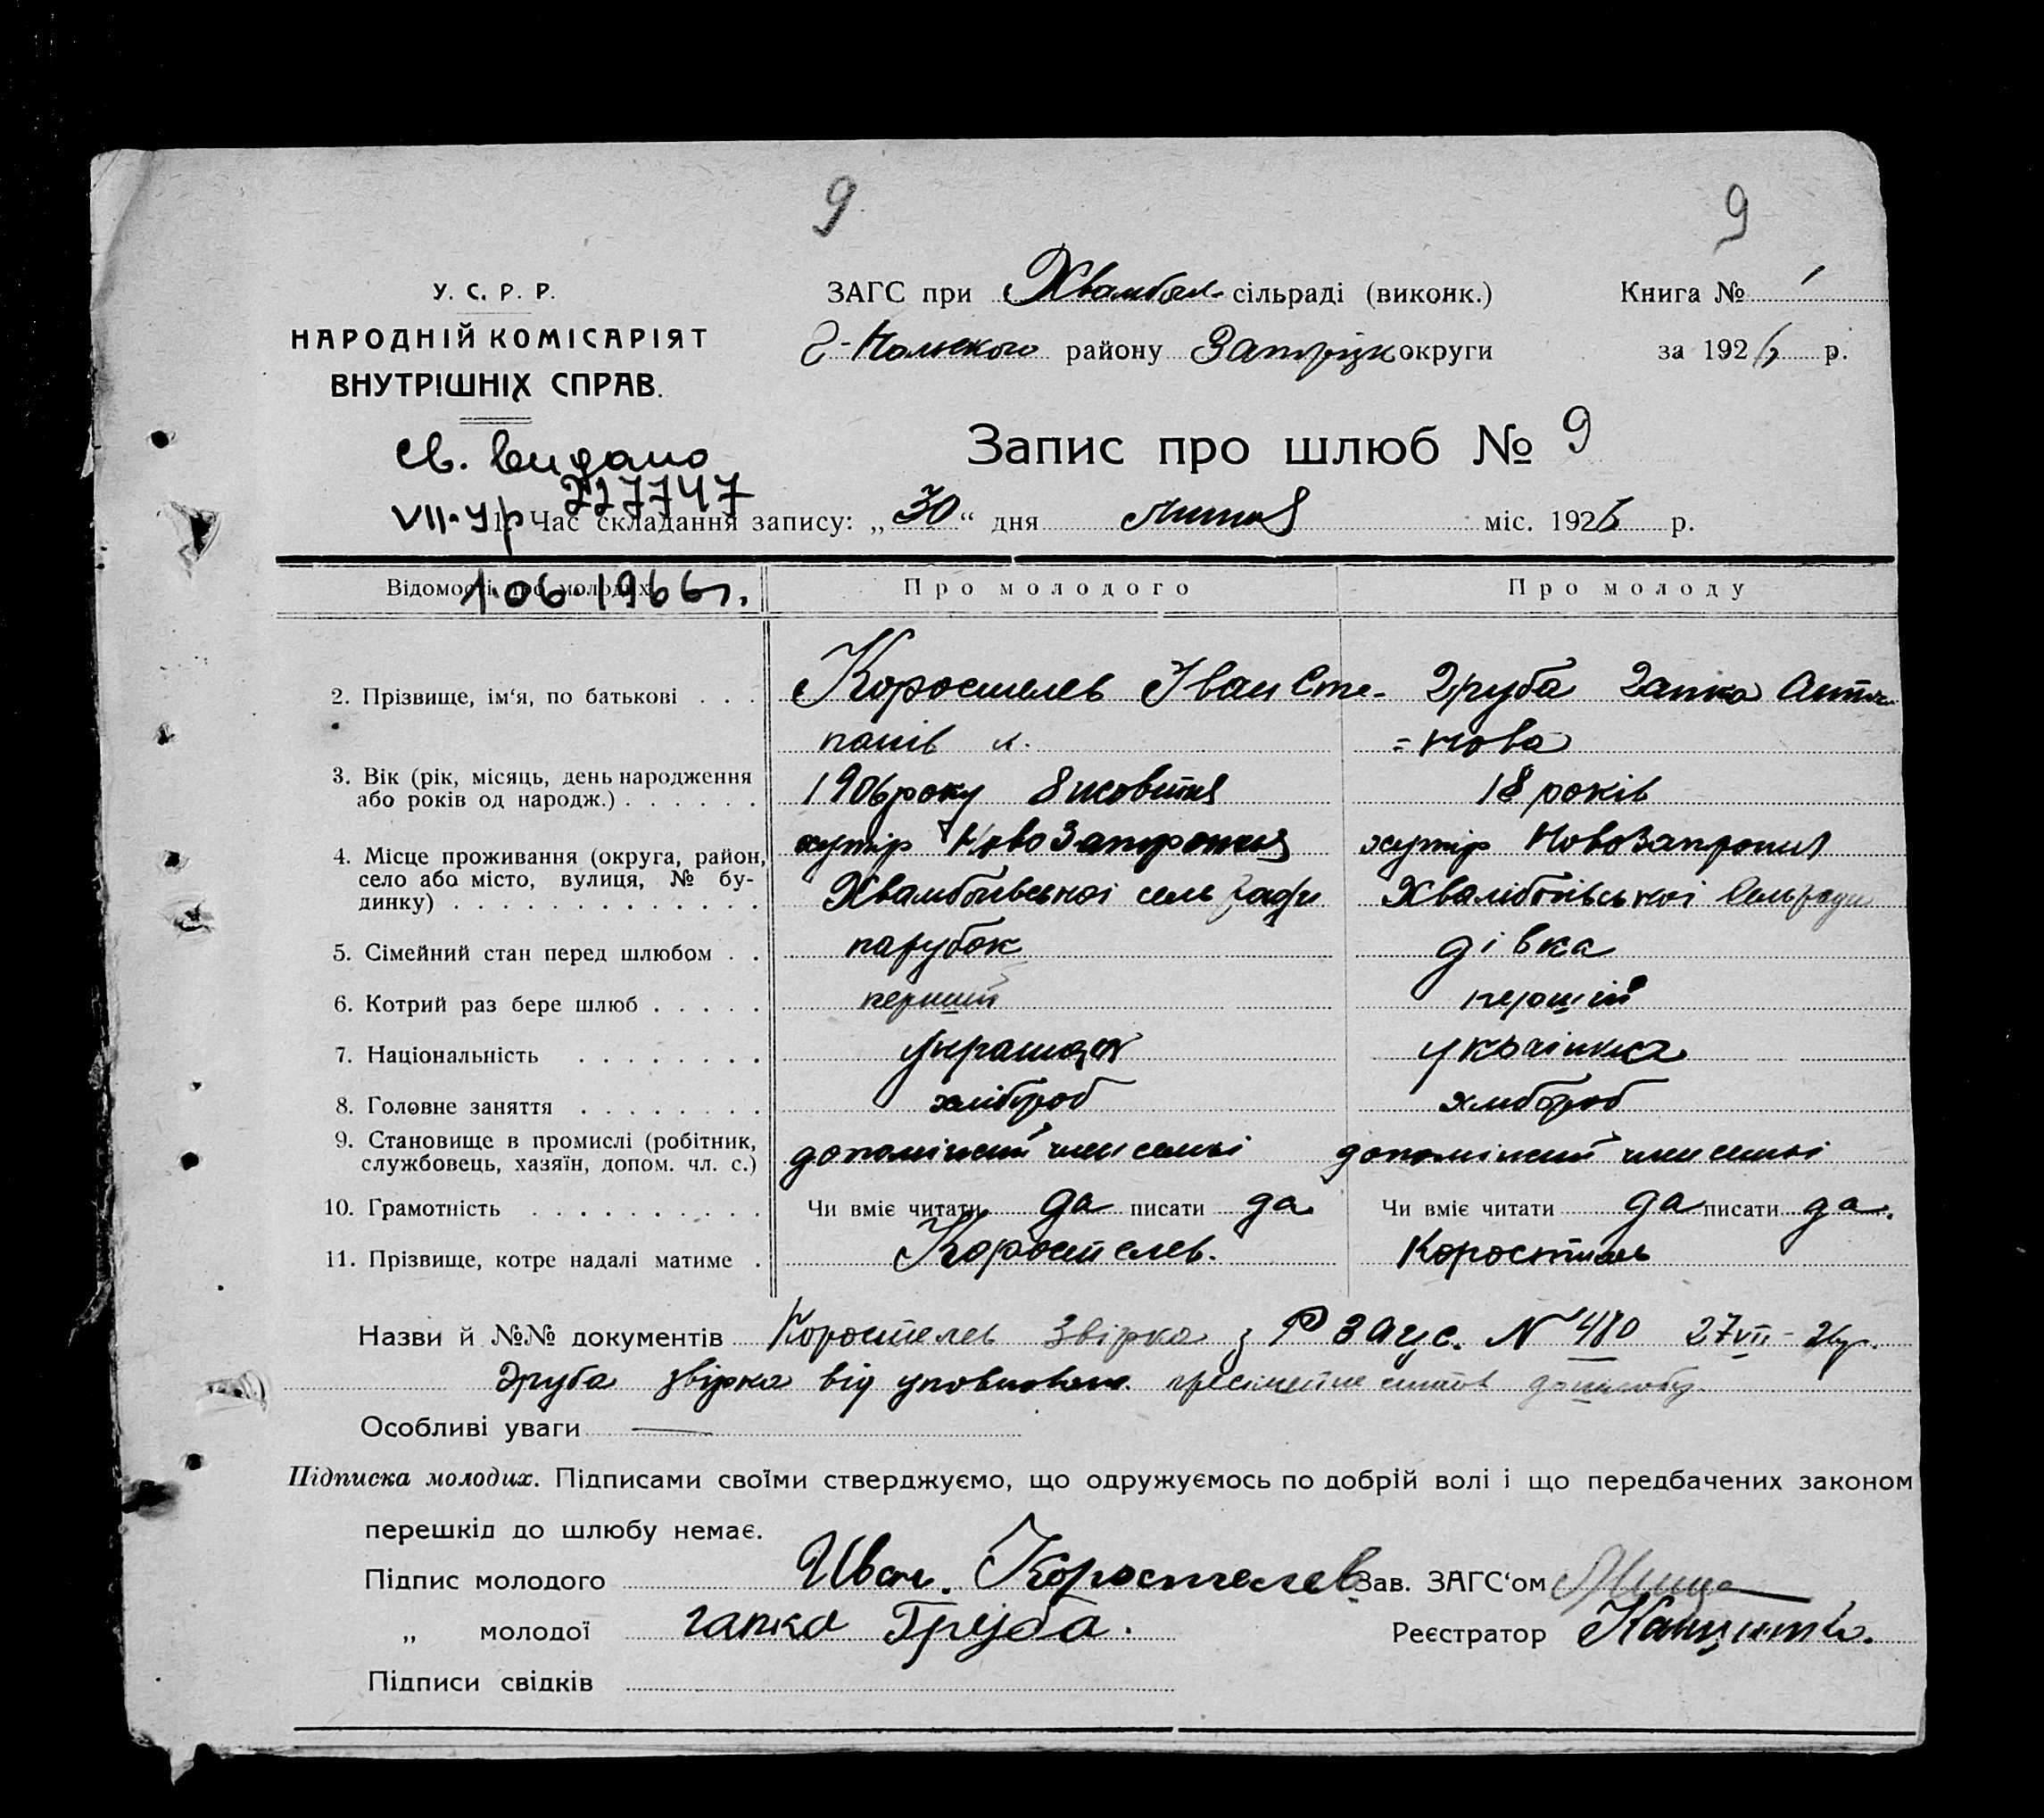 9
9
У. С. Р. Р.
НАРОДНІЙ КОМІСАРІЯТ
ВНУТРІШНІХ СПРАВ.
ЗАГС при сільраді (виконк.)
району округи
Книга № 1
за 1926 р.
св. видано
227747
VII-УР
1·06·1966 г.
Запис про шлюб № 9
1. Час складання запису: „30“ дня липня міс. 1926 р.
Відомості про молодих Про молодого Про молоду
2. Прізвище, ім‘я, по батькові . . . Коростелев Іван Сте- Груба Гапка Анто
панів = нова
3. Вік (рік, місяць, день народження
або років од народж.) . . . . . . 1906 року 8 жовтня 18 років
4. Місце проживання (округа, район, хутір Ново Запрожя хутір Новозапрожя
село або місто, вулиця, № бу- сель ради Сельради
динку) . . . . . . . . . . . . .
5. Сімейний стан перед шлюбом . . парубок дівка
6. Котрий раз бере шлюб . . . . . перший перший
7. Національність . . . . . . . . українец українка
8. Головне заняття . . . . . . . . хлібороб хлібороб
9. Становище в промислі (робітник,
службовець, хазяїн, допом. чл. с.) член семьі член семьі
10. Грамотність . . . . . . . . . . Чи вміє читати да писати да Чи вміє читати да писати да.
11. Прізвище, котре надалі матиме . Коростелев. Коростиль
Назви й №№ документів Коростелев звірка з Р Загс. N 480 27 VII - 26 р.
Груба звірка від
Особливі уваги —
Підписка молодих. Підписами своїми стверджуємо, що одружуємось по добрій волі і що передбачених законом
перешкід до шлюбу немає.
Підпис молодого Иван. Коростелев Зав. ЗАГС‘ом
„ молодої гапка Груба. Реєстратор
Підписи свідків